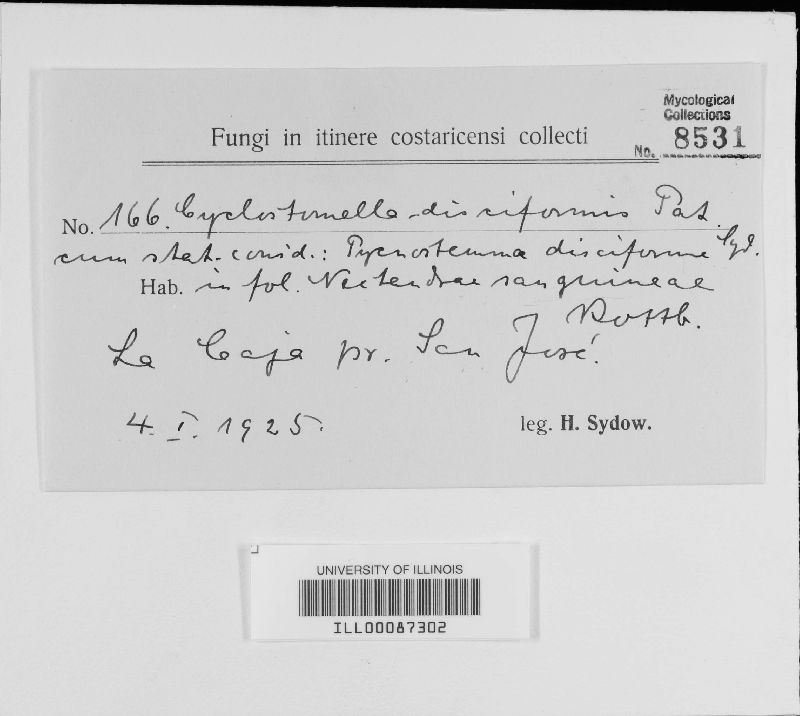 Mycological
Collections
No. 8531
Fungi in itinere costaricensi collecti
No. 166. Cyclostomella disciformis Pat.
cum stat. conid.: Pycnostemma disciforme Syd.
Hab. in fol. Nectandrae sanguineae
Rottb.
La Caja pr. San José.
4. I. 1925.
leg. H. Sydow.
UNIVERSITY OF ILLINOIS
ILL00087302